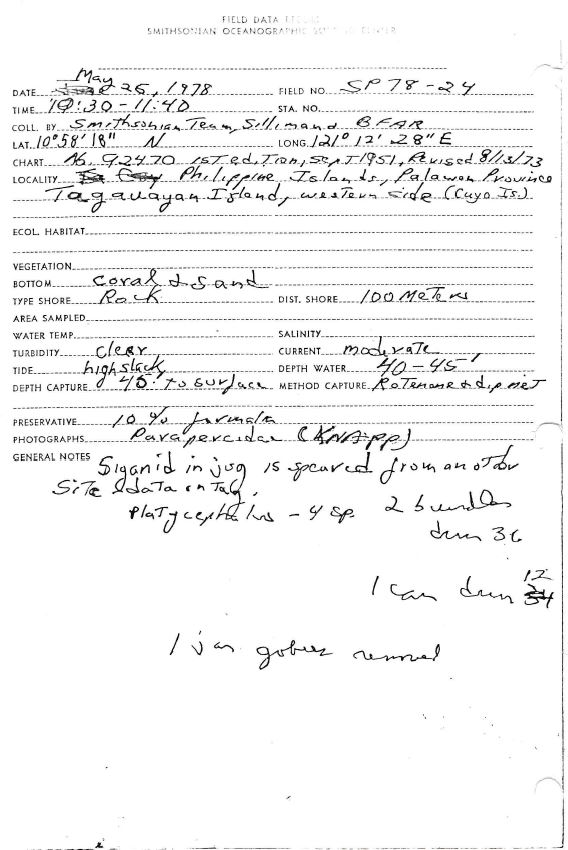 FIELD DATA
SMITHSONIAN OCEANOGRAPHIC
DATE May 25, 1978 FIELD NO. SP 78-24
TIME 10:30-11:40 STA. NO.
COLL. BY Smithsonian Team, Silliman and BFAR
LAT. 10°58'18" N LONG. 121° 12' 28" E
CHART No. 92470 1st ed, Tion, Sept 1951, Revised 8/13/73
LOCALITY Philippine Islands, Palawan Province
Tagauayan Island, western side (Cuyo Is.)
ECOL. HABITAT
VEGETATION
BOTTOM coral & sand
TYPE SHORE Rock DIST. SHORE 100 Meters
AREA SAMPLED
WATER TEMP. SALINITY
TURBIDITY clear CURRENT moderate
TIDE high slack DEPTH WATER 40-45'
DEPTH CAPTURE 45' to surface METHOD CAPTURE Rotenone & dip net
PRESERVATIVE 10% formalin
PHOTOGRAPHS Parapercidae (KNAPP)
GENERAL NOTES Siganid in jug is speared from another
site & data on tag.
Platycephalus - 4 sp. 2 bundles
drum 36
1 can drum 12
1 jar gobies removed